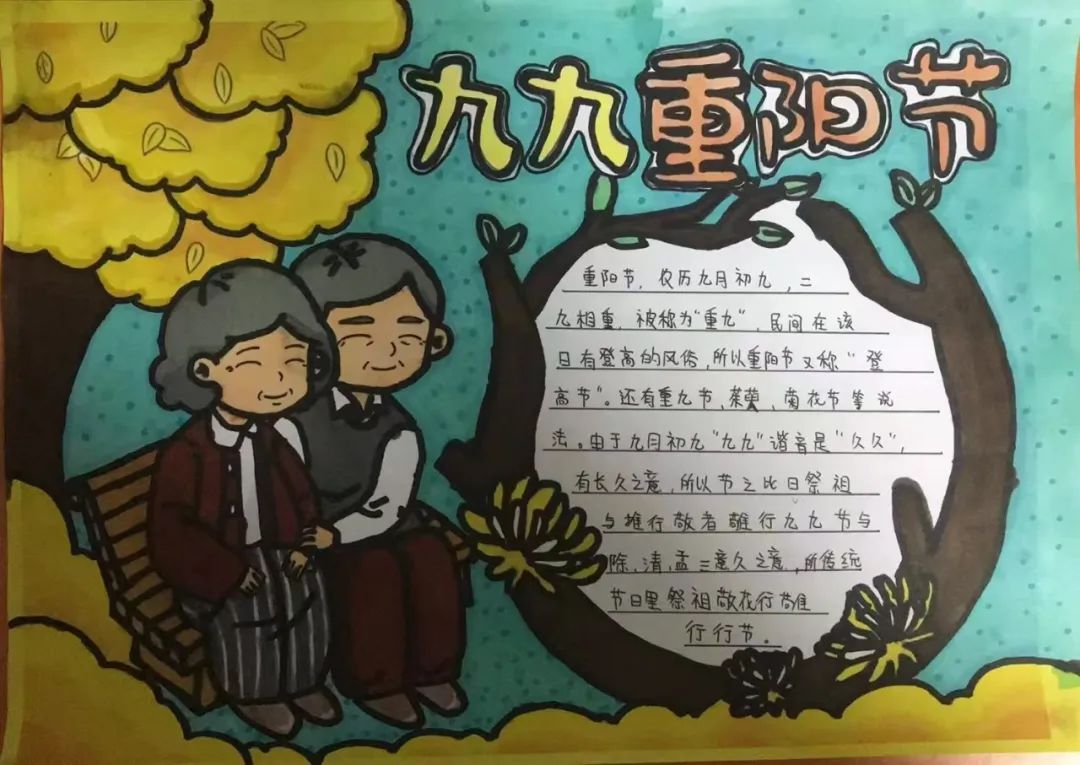 九九重阳节
重阳节，农历九月初九，二
九相重，被称为"重九"，民间在该
日有登高的风俗，所以重阳节又称"登
高节"。还有重九节、茱萸、菊花节等说
法。由于九月初九"九九"谐音是"久久"，
有长久之意，所以节之比日祭祖
与推行敬者雠行九九节与
除、清、盂三意久之意，所传统
节日里祭祖敬花行雠
行行节。